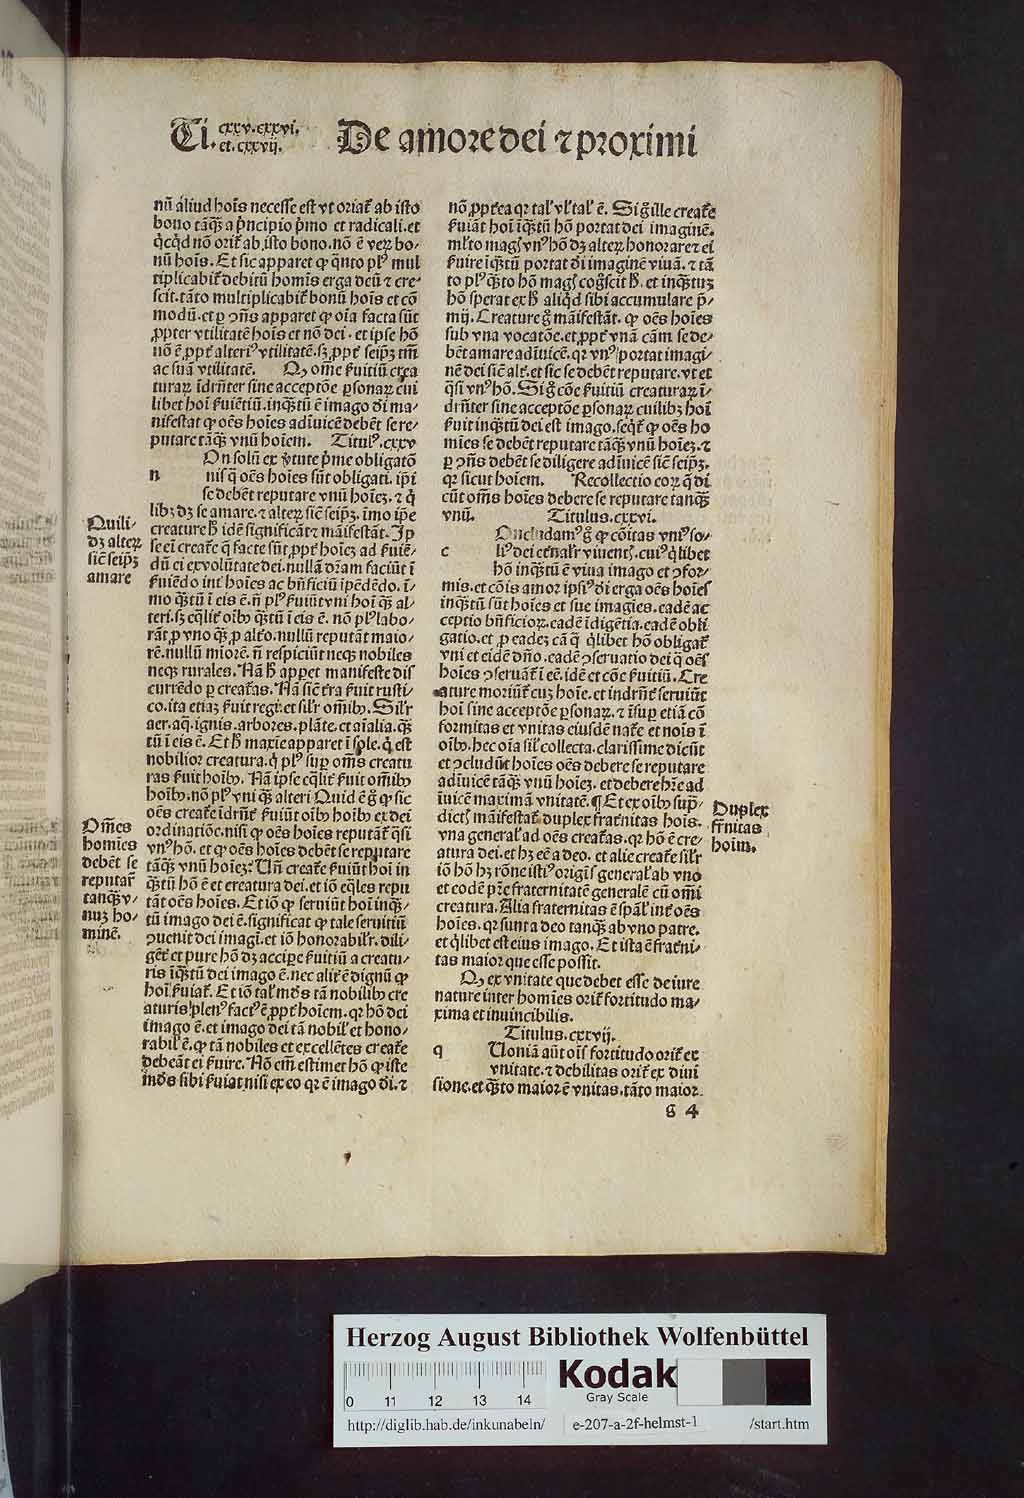 Ti. cxxv. cxxvi.
.et. cxxvij.
De amore dei ⁊ proximi
nũ aliud hoĩs necesse est vt oriat᷑ ab isto
bono tãq̃ȝ a pͥncipio pͥmo et radicali. et
qͥcqͥd nõ orit᷑ ab isto bono. nõ ẽ veꝝ bo-
nũ hoĩs. Et sic apparet ꝙ qͣnto plꝰ mul
tiplicabit᷑ debitũ homĩs erga deũ ⁊ cre-
scit. tãto multiplicabit᷑ bonũ hoĩs et cõ
modũ. et ꝑ ↄñs apparet ꝙ oĩa facta sũt
ꝓpter vtilitatẽ hoĩs et nõ dei. et ipse hõ
nõ ẽ ꝓpt᷑ alteriꝰ vtilitatẽ. sȝ ꝓpt᷑ seipȝ tm̃
ac suã vtilitatẽ. Ꝙ om̃e ẜuitiũ crea
turaꝝ ĩdrñter sine acceptõe ꝑsonaꝝ cui
libet hoĩ ẜuiẽtiũ. inqȝtũ ẽ imago dĩ ma-
nifestat ꝙ oẽs hoĩes adĩuicẽ debẽt se re-
putare tãqȝ vnũ hoĩem. Titulꝰ. cxxv
n
On solũ ex v̓tute pͥme obligatõ
nis qͣ oẽs hoĩes sũt obligati. ip̃i
se debẽt reputare vnũ hoĩeȝ. ⁊ qͥ
libȝ dȝ se amare. ⁊ alteꝝ siẽ seipȝ. ĩmo ip̃e
creature ħ idẽ significãt ⁊ mãifestãt. Ip
se eĩ creat᷑e q̃ facte sũt ꝓpt᷑ hoĩeȝ ad ẜuiẽ-
dũ ei ex volũtate dei. nullã dr̃am faciũt ĩ
ẜuiẽdo int᷑ hoĩes ac bñficiũ ĩpẽdẽdo. ĩ-
mo qȝtũ ĩ eis ẽ. ñ plꝰ ẜuiũt vni hoĩ qȝ al-
teri. sȝ eq̃lit᷑ oĩbꝰ qȝtũ ĩ eis ẽ. nõ plꝰ labo-
rãt ꝓ vno qȝ ꝓ alt᷑o. nullũ reputãt maio-
rẽ. nullũ miorẽ. ñ respiciũt neqȝ nobiles
neqȝ rurales. Nã ħ apꝑet manifeste dis
currẽdo ꝑ creat᷑as. Nã siẽ t᷑ra ẜuit rusti-
co. ita etiaȝ ẜuit regi. et sil̃r om̃ibꝰ. Sil̃r
aer. aq̃. ignis. arbores. plãte. et aĩalia. qȝ
tũ ĩ eis ẽ. Et ħ maxie apparet ĩ sole. qͥ est
nobilior creatura. qͥ plꝰ suꝑ om̃s creatu
ras ẜuit hoĩbꝰ. Nã ipse eq̃lit᷑ ẜuit om̃ibꝰ
hoĩbꝰ. nõ plꝰ vni qȝ alteri Quid ẽ g̊ ꝙ sic
oẽs creat᷑e ĩdrñt᷑ ẜuiũt oĩbꝰ hoĩbꝰ ex dei
ordinatiõe. nisi ꝙ oẽs hoĩes reputãt᷑ qͣsi
vnꝰ hõ. et ꝙ oẽs hoĩes debẽt se reputare
tãqȝ vnũ hoĩeȝ? Uñ creat᷑e ẜuiũt hoĩ in
qȝtũ hõ ẽ et creatura dei. et iõ eq̃les repu
tãt oẽs hoĩes. Et iõ ꝙ seruiũt hoĩ inqȝ-
tũ imago dei ẽ. significat ꝙ tale seruitiũ
ↄuenit dei imagĩ. et iõ honorabil̃r. dili-
gẽt᷑ et pure hõ dȝ accipe ẜuitiũ a creatu-
ris ĩqȝtũ dei imago ẽ. nec alit᷑ ẽ dignũ ꝙ
hoĩ ẜuiat᷑. Et iõ tal᷑ mõs tã nobilibꝰ cre
aturis plenꝰ factꝰ ẽ ꝓpt᷑ hoĩem. qꝛ hõ dei
imago ẽ. et imago dei tã nobil᷑ et hono-
rabil᷑ ẽ. ꝙ tã nobiles et excellẽtes creat᷑e
debeãt ei ẜuire. Nõ em̃ estimet hõ ꝙ iste
mõs sibi ẜuiat nisi ex eo qꝛ ẽ imago dĩ. ⁊
Quili-
dȝ alteꝝ
siẽ seipȝ
amare
Om̃es
homĩes
debẽt se
reputar᷑
tanqȝ v-
nuȝ ho-
minẽ.
nõ ꝓpt᷑ea qꝛ tal᷑ vl᷑ tal᷑ ẽ. Si g̊ ille creat᷑e
ẜuiãt hoĩ ĩqȝtũ hõ portat dei imaginẽ.
ml᷑to magꝭ vnꝰ hõ dȝ alteꝝ honorare ⁊ ei
ẜuire ĩqȝtũ portat dĩ imaginẽ viuã. ⁊ tã
to plꝰ qȝto hõ magꝭ cog̊scit ħ. et inqȝtuȝ
hõ sperat ex ħ aliqͥd sibi accumulare p̃-
mij. Creature g̊ mãifestãt. ꝙ oẽs hoĩes
sub vna vocatõe. et ꝓpt᷑ vnã cãm se de-
bẽt amare adĩuicẽ. qꝛ vnꝰ portat imagi-
nẽ dei siẽ alt᷑. et sic se debẽt reputare. vt et
qͣsi vnꝰ hõ. Si g̊ cõe ẜuitiũ creaturaꝝ ĩ-
drñter sine acceptõe ꝑsonaꝝ cuilibȝ hoĩ
ẜuit inqȝtũ dei est imago. seqͥt᷑ ꝙ oẽs ho
mĩes se debẽt reputare tãqȝ vnũ hoĩeȝ. ⁊
ꝑ ↄñs debẽt se diligere adĩuicẽ siẽ seipȝ.
qꝛ sicut hoĩem. Recollectio eoꝝ q̃ di
cũt om̃s hoĩes debere se reputare tanqȝ
vnũ. Titulus. cxxvi.
c
Oncludamꝰ g̊ ꝙ cõitas vniꝰ so-
liꝰ dei et᷑nal᷑r viuentꝭ. cuiꝰ qͥlibet
hõ inqȝtũ ẽ viua imago et ↄfor-
mis. et cõis amor ipsiꝰ dĩ erga oẽs hoĩes
inqȝtũ sũt hoĩes et sue imagĩes. eadẽ ac
ceptio bñficioꝝ. eadẽ ĩdigẽtia. eadẽ obli
gatio. et ꝓ eadeȝ cã qͣ qͥlibet hõ obligat᷑
vni et eidẽ dño. eadẽ ↄseruatio dei qͣ oẽs
hoĩes ↄseruãt᷑ ĩ eẽ. idẽ et cõe ẜuitiũ. Cre
ature moriũt᷑ cuȝ hoĩe. et indrñt᷑ seruiũt
hoĩ sine acceptõe ꝑsonaꝝ. ⁊ ĩsuꝑ etiã cõ
formitas et vnitas eiusdẽ nat᷑e et noĩs ĩ
oĩbꝰ. hec oĩa sil᷑ collecta. clarissime dicũt
et ↄcludũt hoĩes oẽs debere se reputare
adĩuicẽ tãqȝ vnũ hoĩeȝ. et debere hr̃e ad
ĩuicẽ maximã vnitatẽ. ¶ Et ex oĩbꝰ sup̃-
dictꝭ mãifestat᷑ duplex frat᷑nitas hoĩs.
vna general᷑ ad oẽs creat᷑as. qꝛ hõ ẽ cre-
atura dei. et hȝ eẽ a deo. et alie creat᷑e sil᷑r
iõ hõ hȝ rõne istiꝰ origĩs general᷑ ab vno
et eodẽ pr̃e fraternitatẽ generalẽ cũ om̃i
creatura. Alia fraternitas ẽ sp̃al᷑ int᷑ oẽs
hoĩes. qꝛ sunt a deo tanqȝ ab vno patre.
et qͥlibet est eius imago. Et ista ẽ frat᷑ni-
tas maior que esse possit.
Ꝙ ex vnitate que debet esse de iure
nature inter homĩes orit᷑ fortitudo ma-
xima et inuincibilis.
Titulus. cxxvij.
q
Uoniã aũt oĩs fortitudo orit᷑ ex
vnitate. ⁊ debilitas orit᷑ ex diui
sione. et qȝto maior ẽ vnitas. tãto maior
Duplex
fr̃nitas
hoĩm.
g 4
Herzog August Bibliothek Wolfenbüttel
0 11 12 13 14
Kodak
Gray Scale
http://diglib.hab.de/inkunabeln/ e-207-a-2f-helmst-1 /start.htm